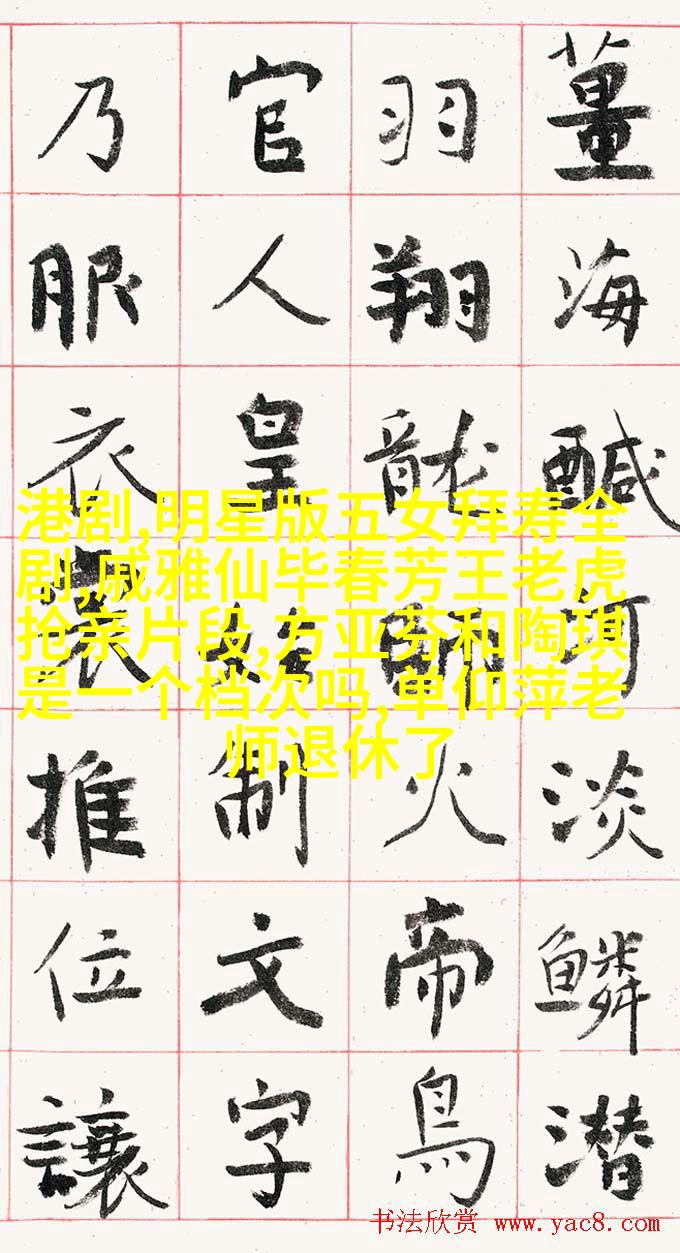 薑海醎河淡鱗潜
羽翔龍師火帝鳥
官人皇始制文字
乃服衣裳推位讓
港剧,明星版五女拜寿全
剧,戚雅仙毕春芳王老虎
抢亲片段,方亚芬和陶琪
是一个档次吗,单仰萍老
师退休了
书法欣赏 www.yac8.com